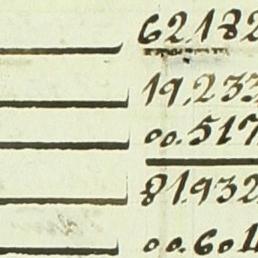 62,182
19,233
00.517
81,932
00.601